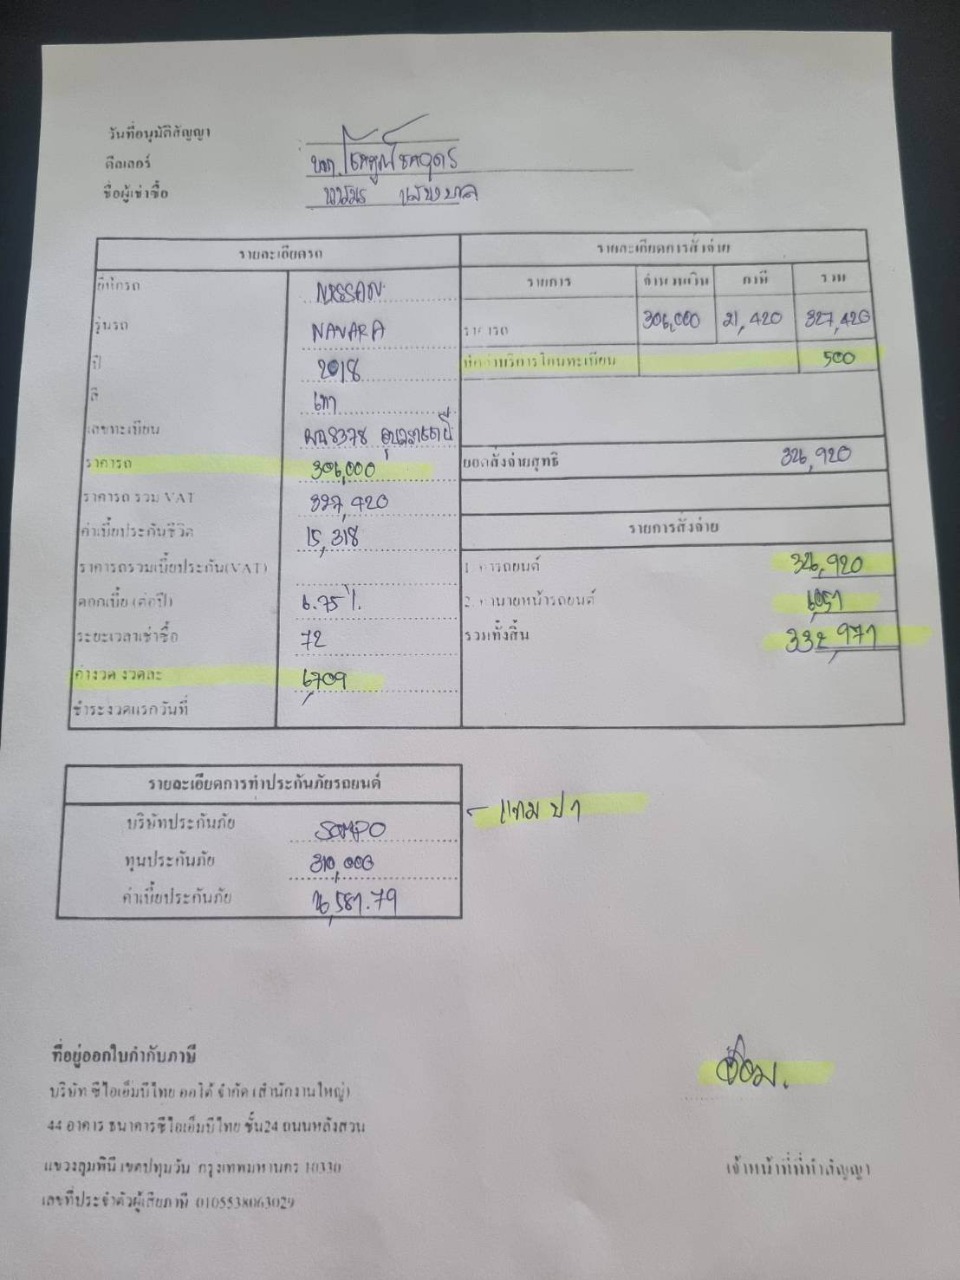 วันที่อนุมัติสัญญา
ดีลเลอร์
ชื่อผู้เช่าซื้อ
รายละเอียดรถ
ยี่ห้อรถ NISSAN
รุ่นรถ NAVARA
ปี 2018
สี เทา
เลขทะเบียน 8378 อุบลราชธานี
ราคารถ 306,000
ราคารถ รวม VAT 327,420
ค่าเบี้ยประกันชีวิต 15,318
ราคารถรวมเบี้ยประกัน(VAT)
ดอกเบี้ย (ต่อปี) 6.75 %
ระยะเวลาเช่าซื้อ 72
ค่างวด งวดละ 6,709
ชำระงวดแรกวันที่
รายละเอียดการสั่งจ่าย
รายการ จำนวนเงิน ภาษี รวม
ราคารถ 306,000 21,420 327,420
หักค่าบริการโอนทะเบียน 500
ยอดสั่งจ่ายสุทธิ 326,920
รายการสั่งจ่าย
1. ค่ารถยนต์ 326,920
2. ค่านายหน้ารถยนต์ 6,051
รวมทั้งสิ้น 332,971
รายละเอียดการทำประกันภัยรถยนต์
บริษัทประกันภัย SOMPO
ทุนประกันภัย 310,000
ค่าเบี้ยประกันภัย 16,581.79
- แถม ป 1
ที่อยู่ออกใบกำกับภาษี
บริษัท ซีไอเอ็มบีไทย ออโต้ จำกัด (สำนักงานใหญ่)
44 อาคาร ธนาคารซีไอเอ็มบีไทย ชั้น24 ถนนหลังสวน
แขวงลุมพินี เขตปทุมวัน กรุงเทพมหานคร 10330
เลขที่ประจำตัวผู้เสียภาษี 0105538063029
เจ้าหน้าที่ที่ทำสัญญา